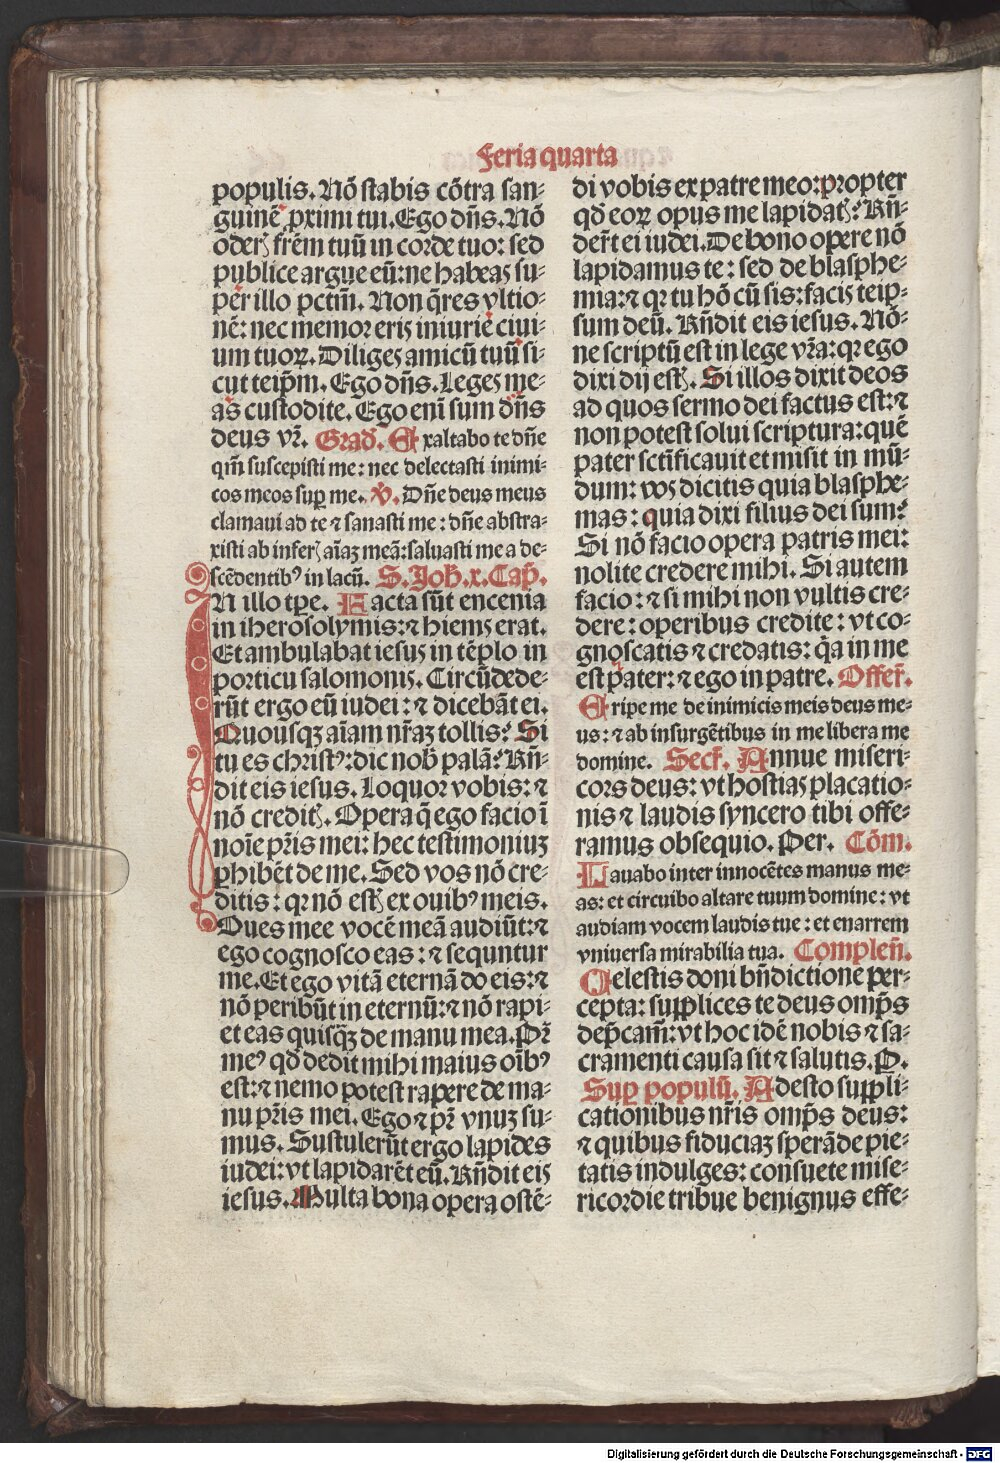 Feria quarta
populis. Nō stabis cōtra san⸗
guinē ꝓximi tui. Ego dn̄s. Nō
oderꝭ fr̄em tuū in corde tuo: sed
publice argue eū: ne habeas su⸗
per illo pctm̄. Non q̄res vltio⸗
nē: nec memor eris iniurie ciui⸗
um tuoꝝ. Diliges amicū tuū si⸗
cut teip̄m. Ego dn̄s. Leges me⸗
as custodite. Ego eni sum dn̄s
deus vr̄. Grad̄. Exaltabo te dn̄e
qm̄ suscepisti me: nec delectasti inimi⸗
cos meos suꝑ me. V̄. Dn̄e deus meus
clamaui ad te ⁊ sanasti me: dn̄e abstra⸗
xisti ab inferꝭ aīaꝫ meā: saluasti me a de⸗
scēdentibꝰ in lacū. S. Joh̄. x. Cap̄.
IN illo tꝑe. Facta sūt encenia
in iherosolymis: ⁊ hiems erat.
Et ambulabat iesus in tēplo in
porticu salomonis. Circūdede⸗
rūt ergo eū iudei: ⁊ dicebāt ei.
Quousqꝫ aīam nr̄aꝫ tollis? Si
tu es christꝰ: dic nob̄ palā? Rn̄⸗
dit eis iesus. Loquor vobis: ⁊
nō creditꝭ. Opera q̄ ego facio ī
noīe pr̄is mei: hec testimoniuꝫ
ꝓhibēt de me. Sed vos nō cre⸗
ditis: qꝛ nō estꝭ ex ouibꝰ meis.
Oues mee vocē meā audiūt: ⁊
ego cognosco eas: ⁊ sequntur
me. Et ego vitā eternā do eis: ⁊
nō peribūt in eternū: ⁊ nō rapi⸗
et eas quisq̄ꝫ de manu mea. Pr̄
meꝰ qd̄ dedit mihi maius oībꝰ
est: ⁊ nemo potest rapere de ma⸗
nu pr̄is mei. Ego ⁊ pr̄ vnuꝫ su⸗
mus. Sustulerūt ergo lapides
iudei: vt lapidarēt eū. Rn̄dit eis
iesus. Multa bona opera ostē⸗
di vobis ex patre meo: propter
qd̄ eoꝝ opus me lapidatꝭ? Rn̄⸗
der̄t ei iudei. De bono opere nō
lapidamus te: sed de blasphe⸗
mia: ⁊ qꝛ tu hō cū sis: facis teip⸗
sum deū. Rn̄dit eis iesus. Nō⸗
ne scriptū est in lege vr̄a: qꝛ ego
dixi dij estꝭ. Si illos dixit deos
ad quos sermo dei factus est: ⁊
non potest solui scriptura: quē
pater sctīficauit et misit in mū⸗
dum: vos dicitis quia blasphe⸗
mas: quia dixi filius dei sum?
Si nō facio opera patris mei:
nolite credere mihi. Si autem
facio: ⁊ si mihi non vultis cre⸗
dere: operibus credite: vt co⸗
gnoscatis ⁊ credatis: q̄a in me
est pater: ⁊ ego in patre. Offer̄.
Eripe me de inimicis meis deus me⸗
us: ⁊ ab insurgētibus in me libera me
domine. Secr̄. Annue miseri⸗
cors deus: vt hostias placatio⸗
nis ⁊ laudis syncero tibi offe⸗
ramus obsequio. Per. Cōm.
Lauabo inter innocētes manus me⸗
as: et circuibo altare tuum domine: vt
audiam vocem laudis tue: et enarrem
vniuersa mirabilia tua. Complen̄.
Celestis doni bn̄dictione per⸗
cepta: supplices te deus omp̄s
dep̄cam̄: vt hoc idē nobis ⁊ sa⸗
cramenti causa sit ⁊ salutis. P.
Suꝑ populū. Adesto suppli⸗
cationibus nr̄is omp̄s deus:
⁊ quibus fiduciaꝫ sperāde pie⸗
tatis indulges: consuete mise⸗
ricordie tribue benignus effe⸗
Digitalisierung gefördert durch die Deutsche Forschungsgemeinschaft - DFG